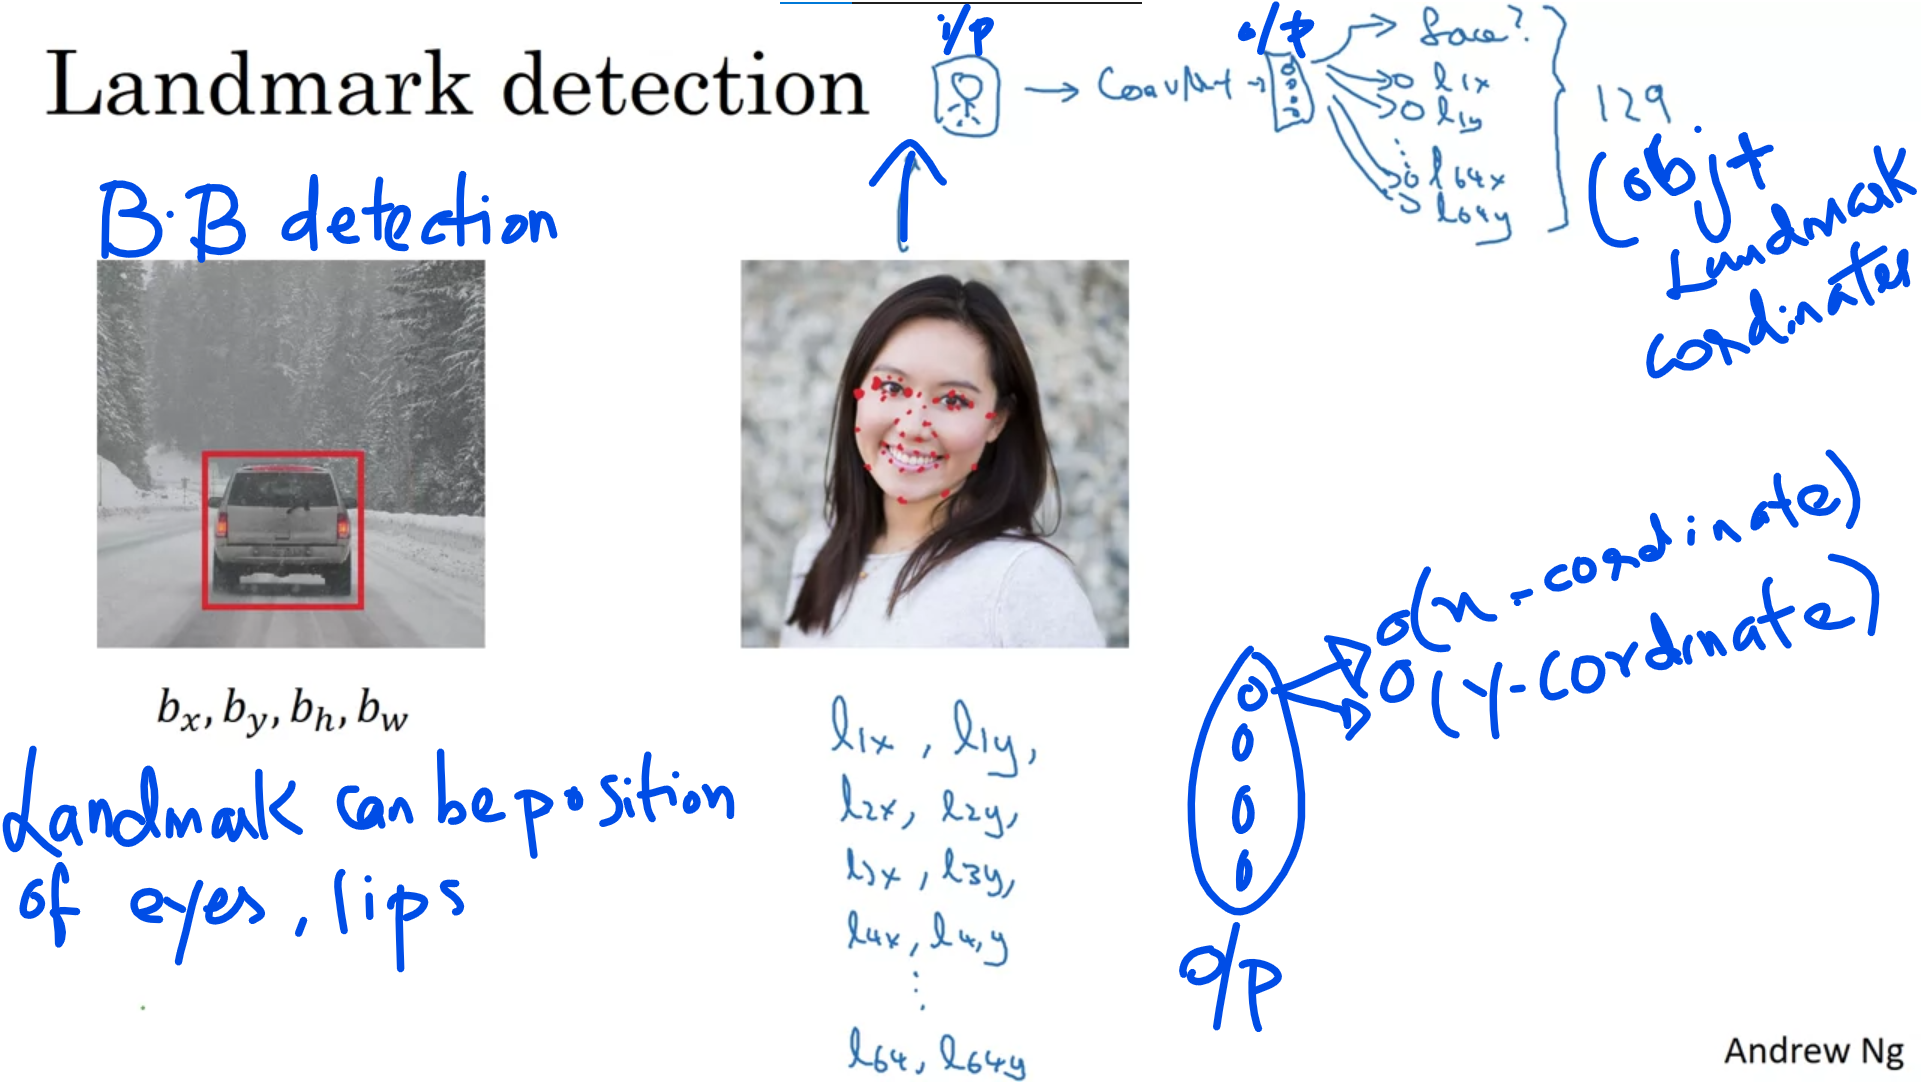 Landmark detection
i/p
o/p
→ ConvNet →
face?
l1x
l1y
⋮
l64x
l64y
129
(objt
Landmark
cordinates
B.B detection
bx, by, bh, bw
Landmark can be position
of eyes, lips
l1x, l1y,
l2x, l2y,
l3x, l3y,
l4x, l4,y
⋮
l64, l64y
(x-cordinate)
(y-cordinate)
o/p
Andrew Ng